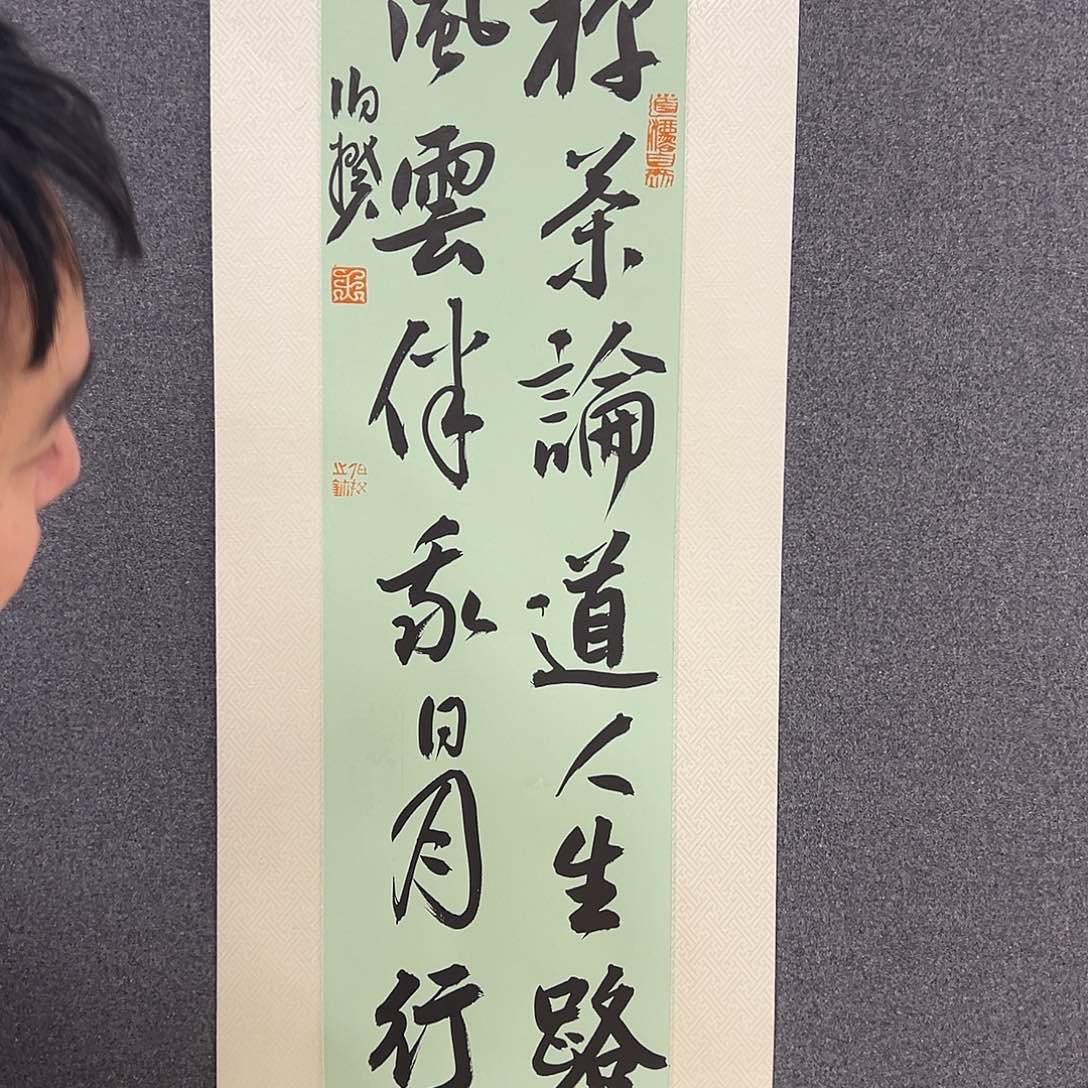 禪茶論道人生路
風雲伴我日月行
伯揆